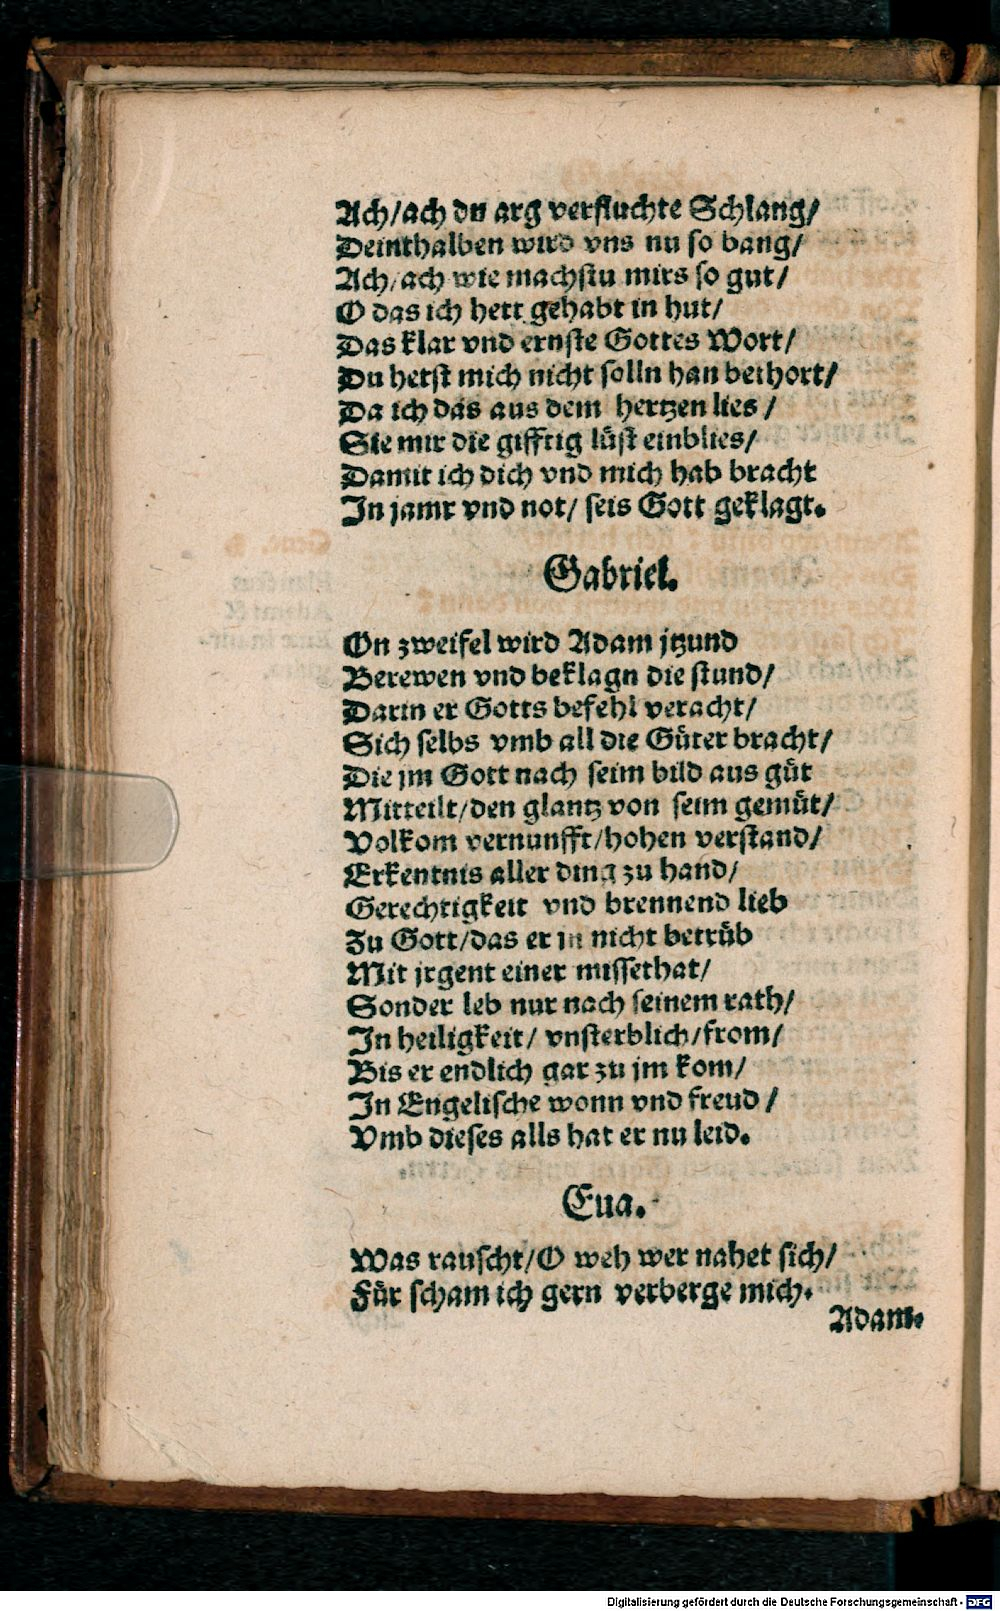 Ach/ach du arg verfluchte Schlang/
Deinthalben wird vns nu so bang/
Ach/ach wie machstu mirs so gut/
O das ich hett gehabt in hut/
Das klar vnd ernste Gottes Wort/
Du hetst mich nicht solln han bethort/
Da ich das aus dem hertzen lies /
Sie mir die gifftig lüst einblies/
Damit ich dich vnd mich hab bracht
In jamr vnd not/ seis Gott geklagt.
Gabriel.
On zweifel wird Adam jtzund
Berewen vnd beklagn die stund/
Darin er Gotts befehl veracht/
Sich selbs vmb all die Güter bracht/
Die jm Gott nach seim bild aus güt
Mitteilt/den glantz von seim gemüt/
Volkom vernunfft/hohen verstand/
Erkentnis aller ding zu hand/
Gerechtigkeit vnd brennend lieb
Zu Gott/das er jn nicht betrüb
Mit jrgent einer missethat/
Sonder leb nur nach seinem rath/
In heiligkeit/ vnsterblich/from/
Bis er endlich gar zu jm kom/
In Engelische wonn vnd freud /
Vmb dieses alls hat er nu leid.
Eua.
Was rauscht/O weh wer nahet sich/
Für scham ich gern verberge mich.
Adam.
Digitalisierung gefördert durch die Deutsche Forschungsgemeinschaft - DFG